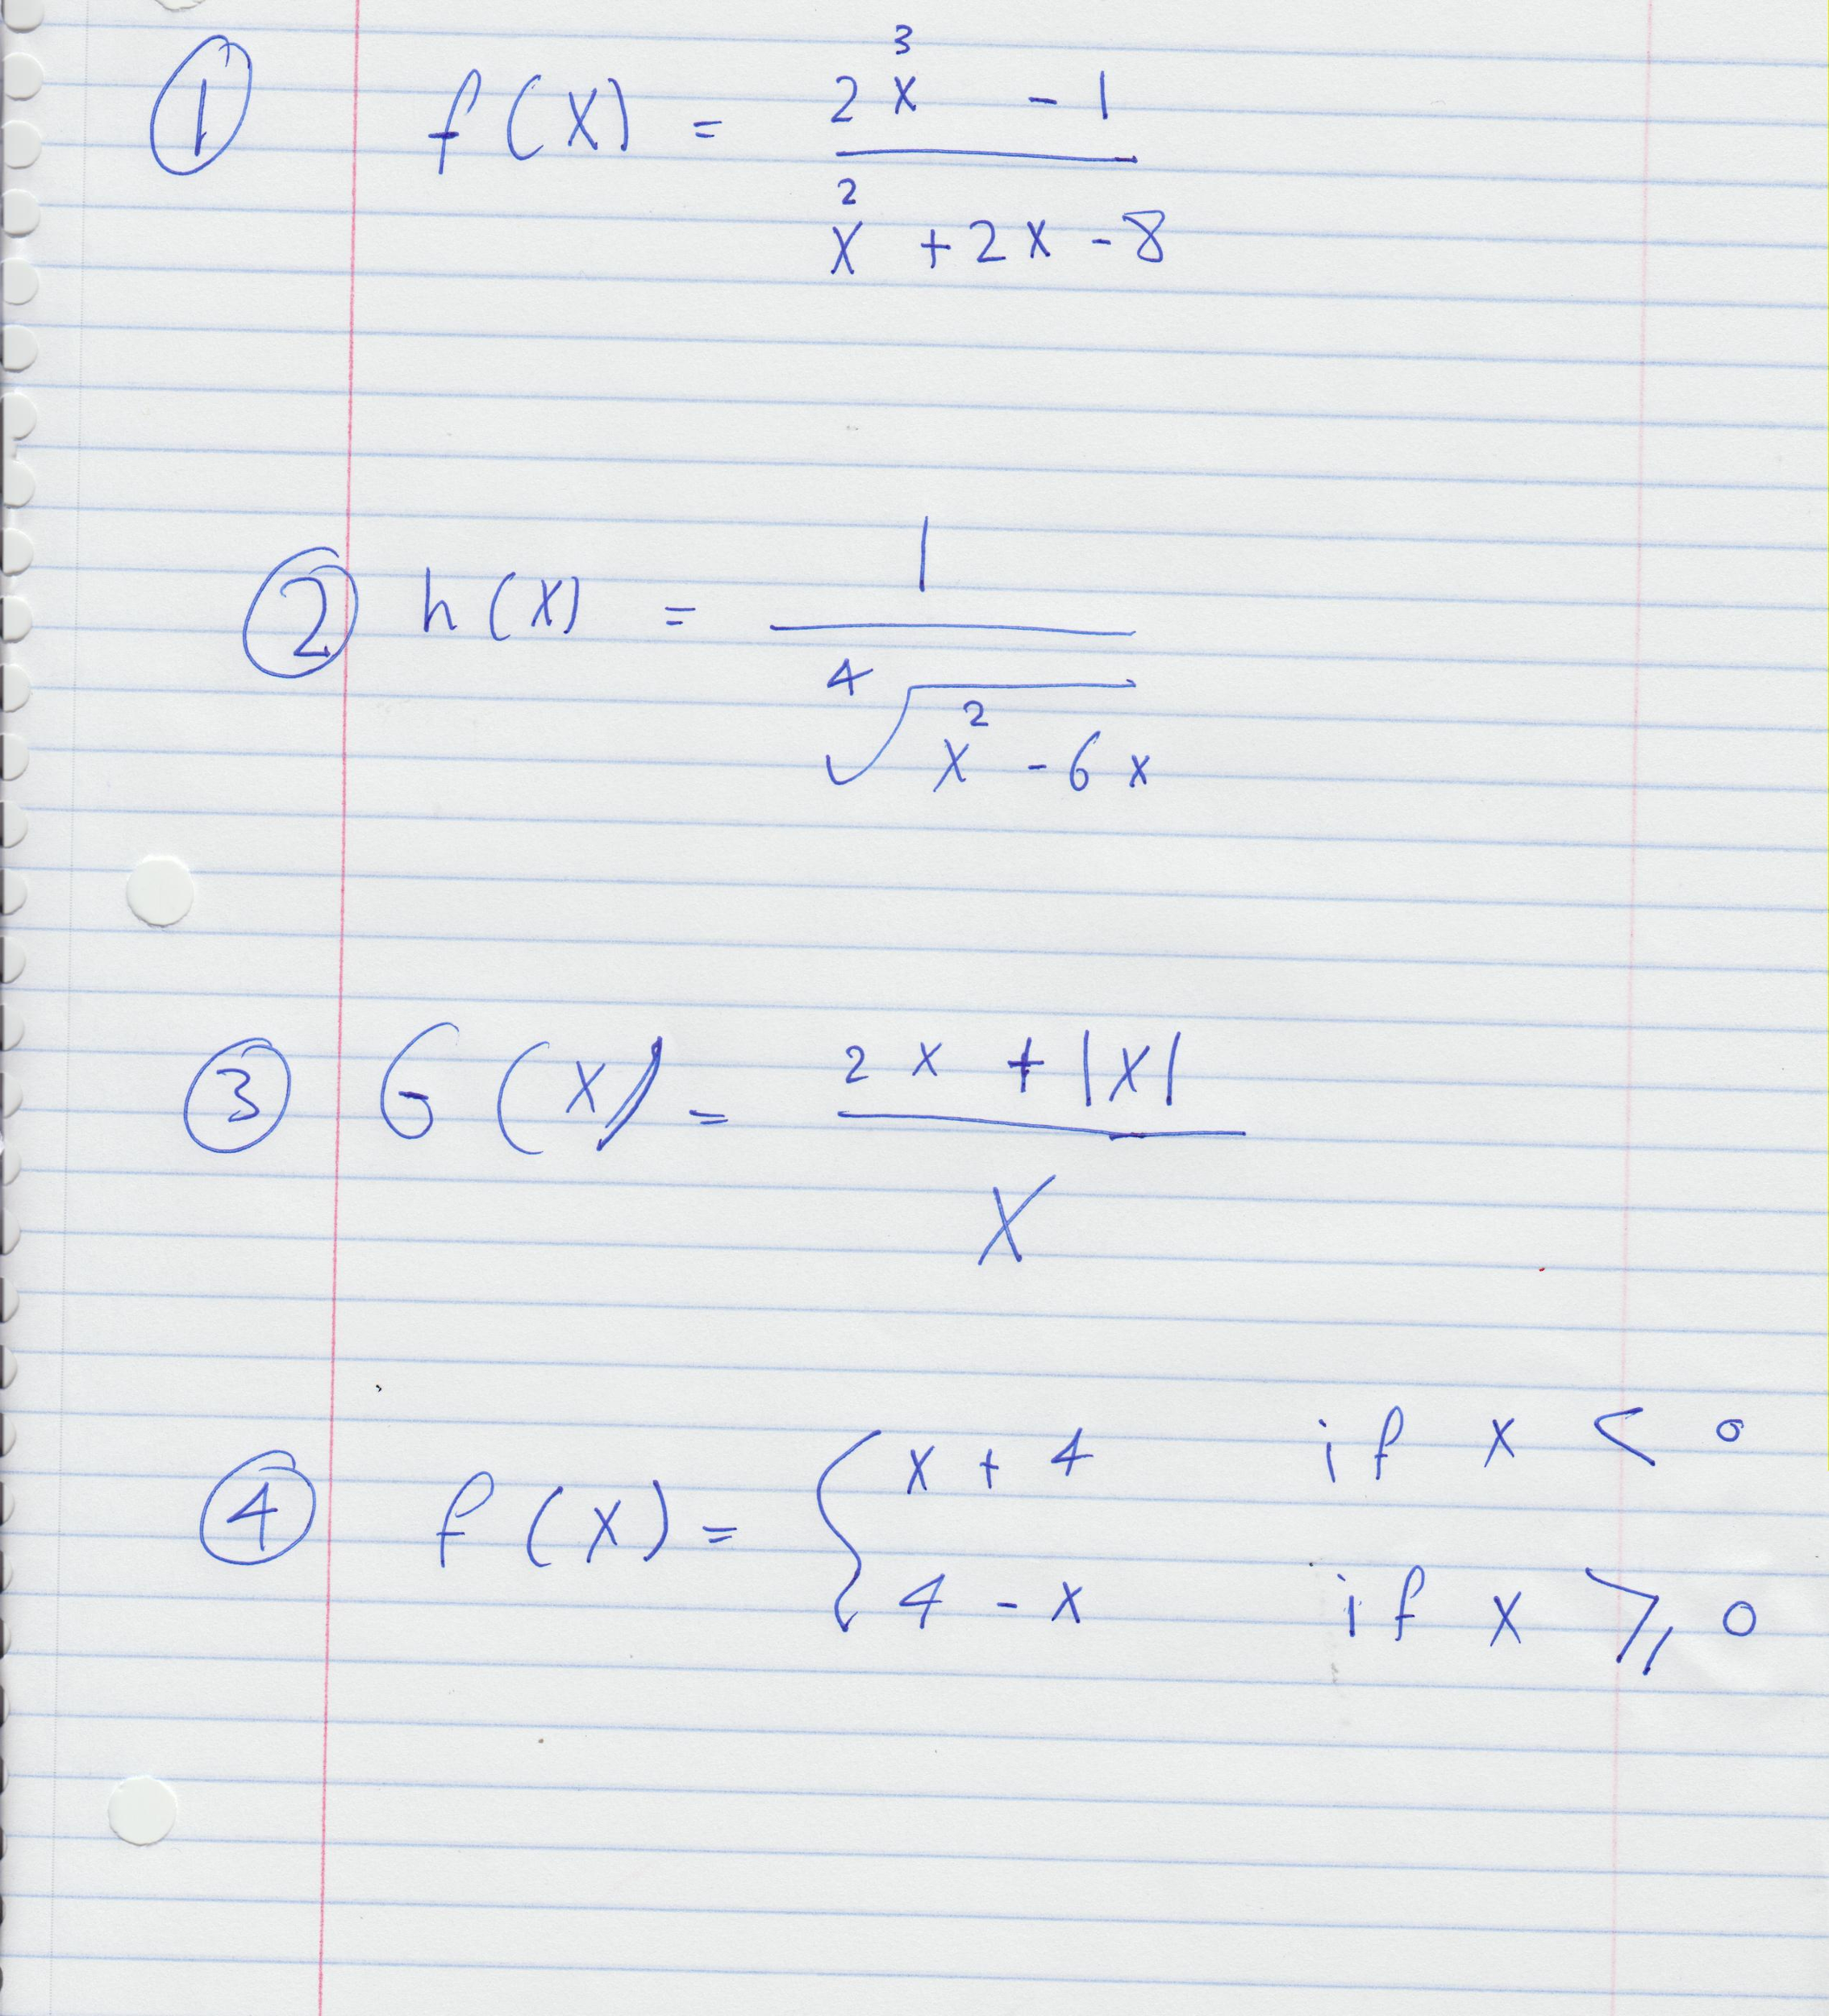 ① f(x) = (2x³ - 1) / (x² + 2x - 8)
② h(x) = 1 / ⁴√(x² - 6x)
③ G(x) = (2x + |x|) / x
④ f(x) = { x + 4 if x < 0
4 - x if x ⩾ 0